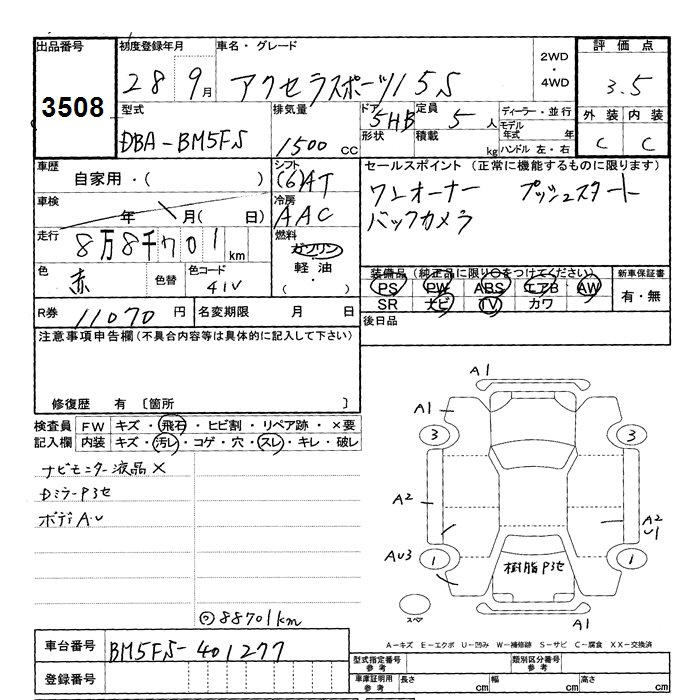 出品番号 初度登録年月 車名・グレード 2WD・4WD 評価点
3508 28 9月 アクセラスポーツ15S 3.5
型式 排気量 ドア 定員 ディーラー・並行 外装 内装
DBA-BM5FS 1500cc 5HB 5人 モデル年式 年 C C
形状 積載 kg ハンドル 左・右
車歴 シフト セールスポイント (正常に機能するものに限ります)
自家用・( ) (6)AT ワンオーナー プッシュスタート
車検 年 月( 日) 冷房 AAC バックカメラ
走行 8万8千701km 燃料 ガソリン
軽油・( )
色 赤 色替 色コード 41V
装備品 (純正品に限り○をつけてください) 新車保証書
PS PW ABS エアB AW 有・無
SR ナビ TV カワ
R券 11070円 名変期限 月 日 後日品
注意事項申告欄(不具合内容等は具体的に記入して下さい)
修復歴 有 〔箇所 〕
検査員 FW キズ・飛石・ヒビ割・リペア跡・×要
記入欄 内装 キズ・汚レ・コゲ・穴・スレ・キレ・破レ
ナビモニター液晶×
Dミラー Pヨセ
ボディA.U
◎88701km
A1
A1
3 3
A2
A2
U1
AU3 1 1
樹脂Pヨセ
スペア
A1
A-キズ E-エクボ U-凹み W-補修跡 S-サビ C-腐食 XX-交換済
車台番号 BM5FS-401277
登録番号
型式指定番号 参考 類別区分番号 参考
車庫証明用 参考 長さ cm 幅 cm 高さ cm